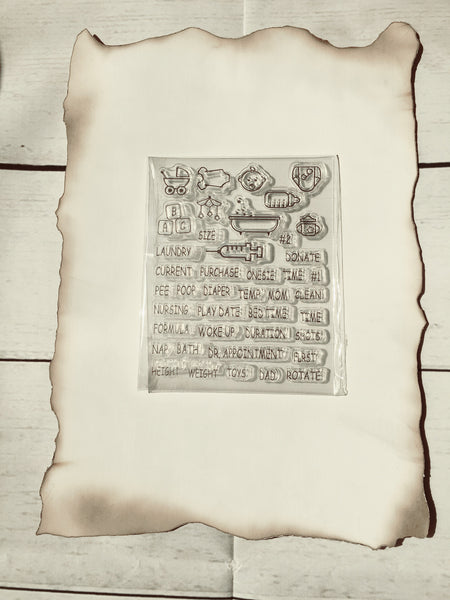 B
A C
SIZE #2
LAUNDRY DONATE
CURRENT PURCHASE ONESIE TIME #1
PEE POOP DIAPER TEMP MOM CLEAN
NURSING PLAY DATE BEDTIME TIME
FORMULA WOKE UP DURATION SHOTS
NAP BATH DR. APPOINTMENT FIRST
HEIGHT WEIGHT TOYS DAD ROTATE